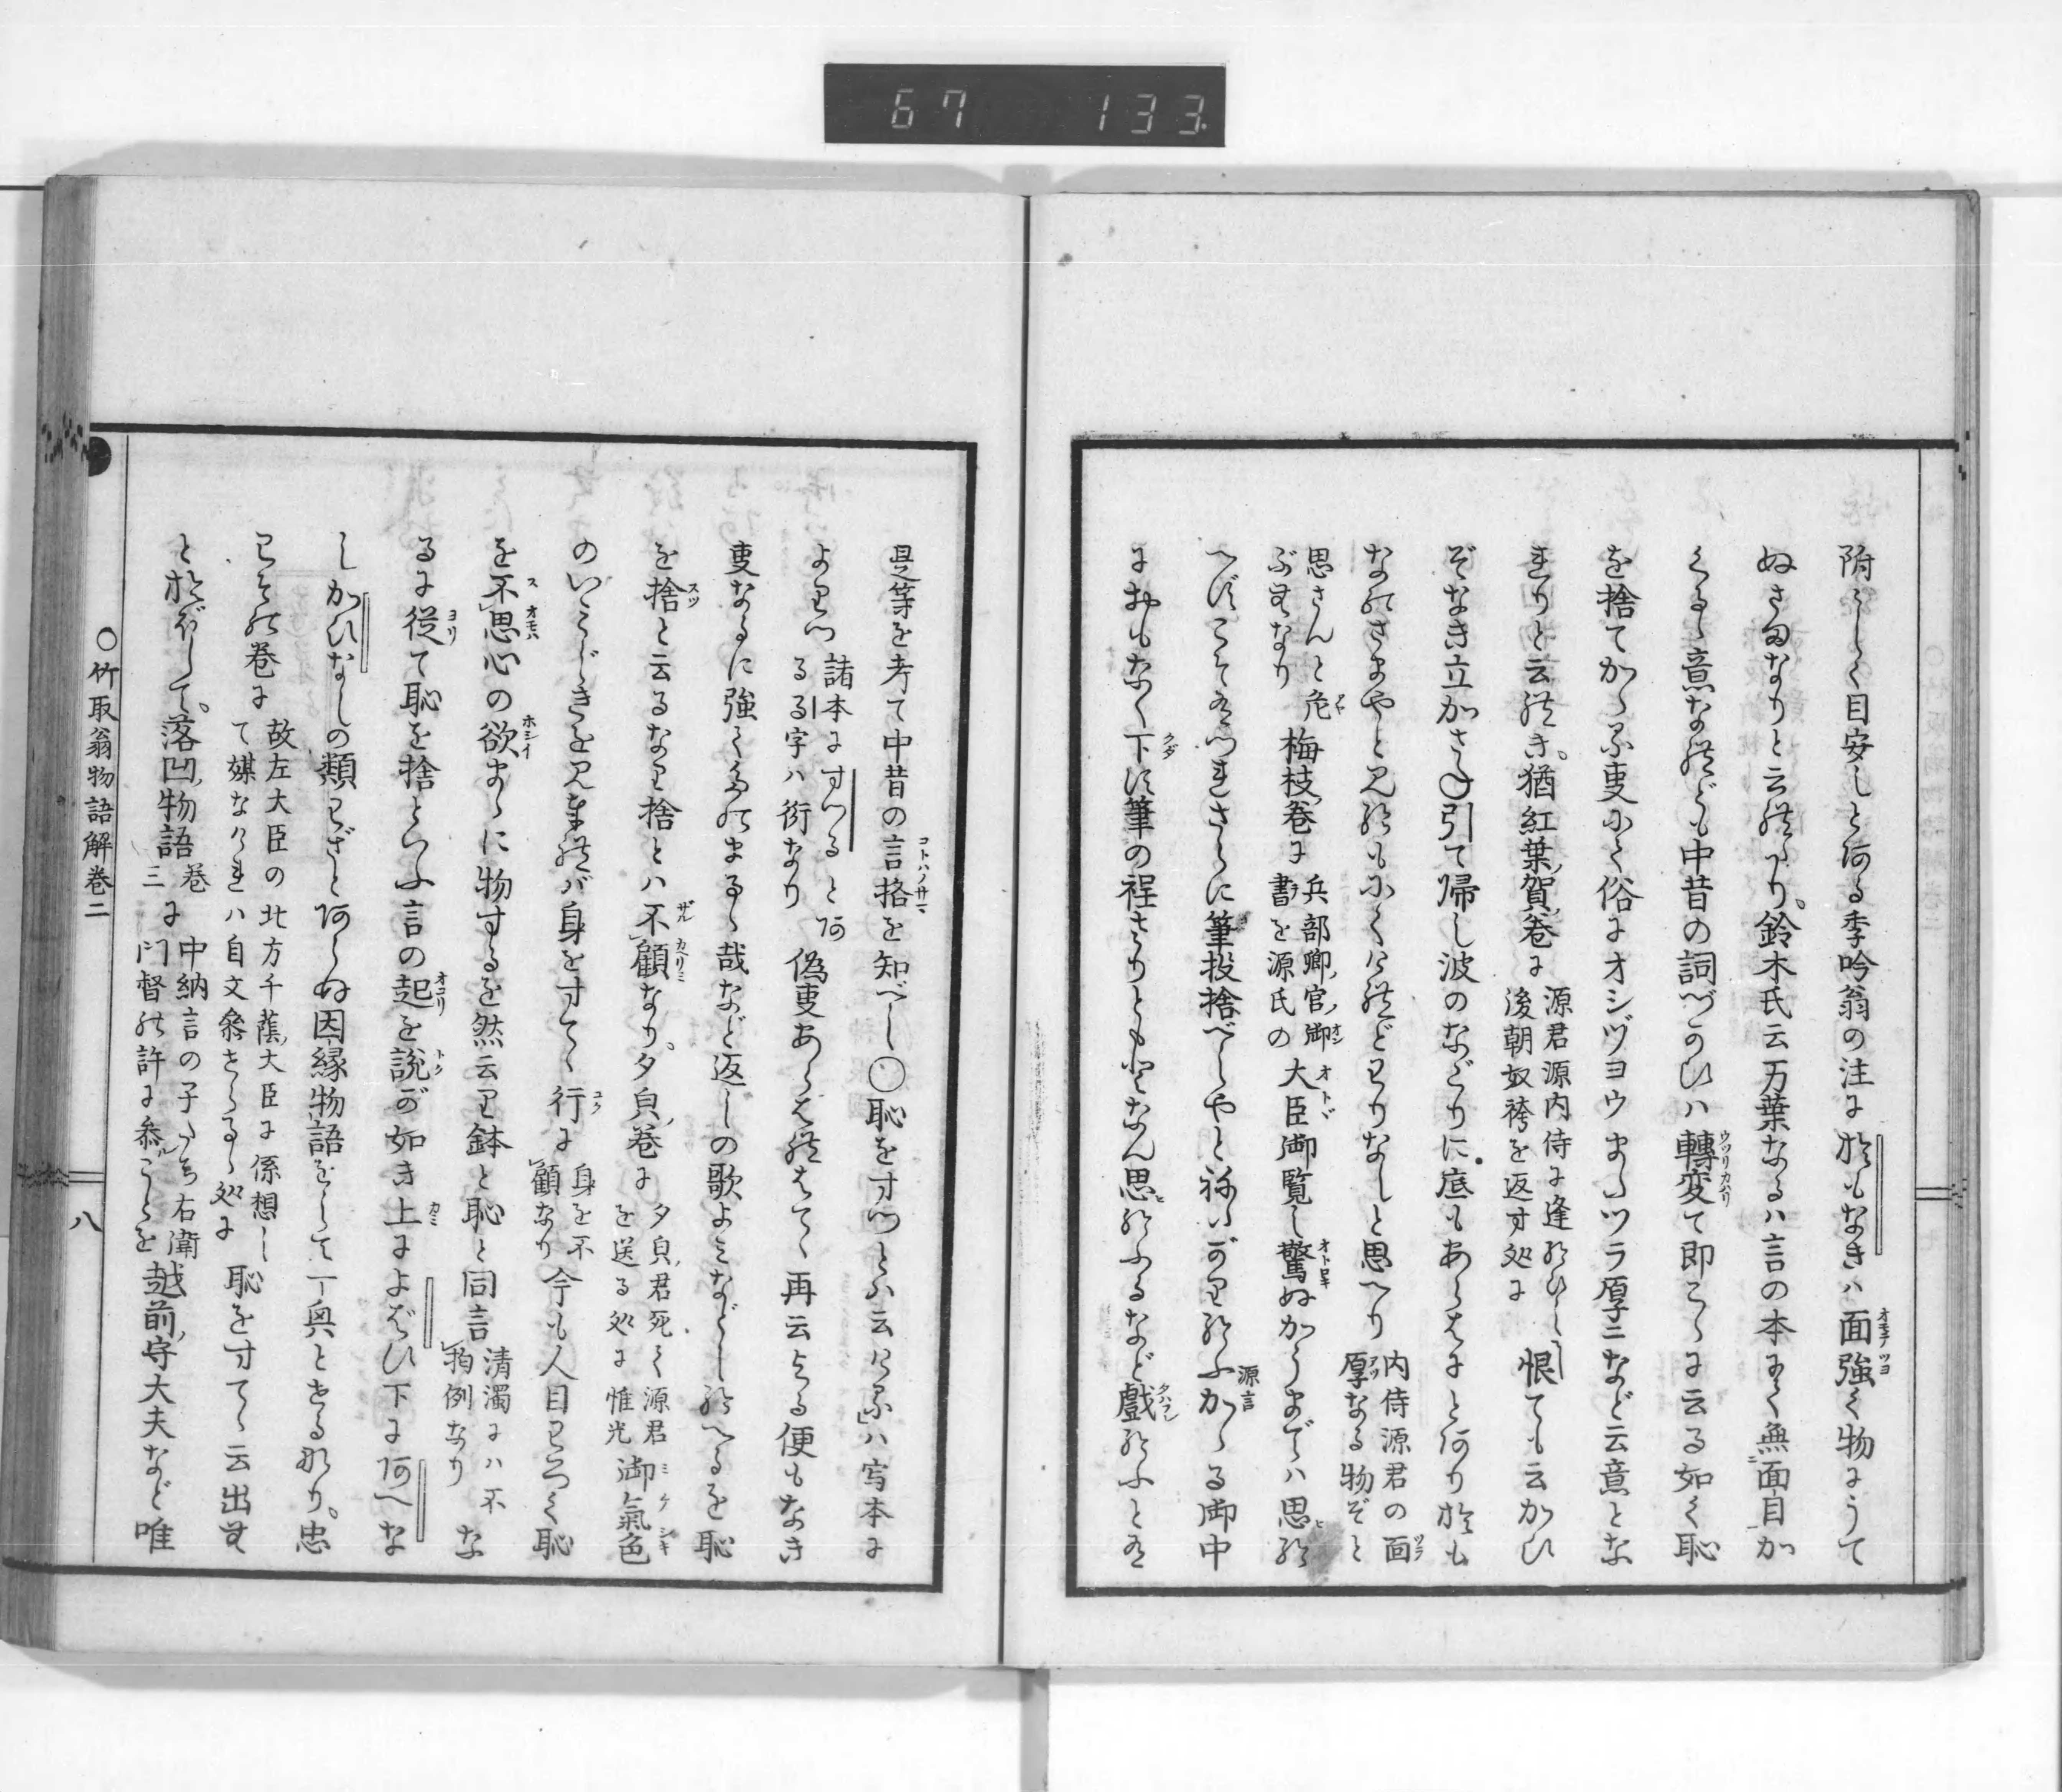 67 133
附らしく目安しと阿る季吟翁の注におもなきハ面強く物にうて
ぬさまなりと云れたり。鈴木氏云万葉なるハ言の本にて無面目か
くる意なれども中昔の詞づかひハ轉変て即こゝに云る如く恥
を捨てかゝる事にて俗にオシヅヨウまたツラ厚ニなど云意とな
れりと云れき。猶紅葉賀,巻に
源君源内侍に逢給ひし
後朝奴袴を返す処に
恨ても云かひ
ぞなき立かさね引て帰し波のなごりに底もあらはにと阿りおも
なのさまやと見給もにくけれどわりなしと思へり
内侍源君の面
厚なる物ぞと
思さんと危
ぶむなり
梅枝,巻に
兵部卿,官,御
書を源氏の
大臣御覧し驚ぬかうまでハ思給
へずこそ有つれさらに筆投捨べしやとねたがり給ふかゝる御中
におもなく下す筆の程さりともとなん思給ふるなど戯給ふと有
是等を考て中昔の言格を知べし〇恥をすつとハ云ける」ハ写本に
よりつ
諸本にすつると阿
るる字ハ衍なり
偽事あらはれはてゝ再云よる便もなき
事なるに強くためまるゝ哉など返しの歌よみなどし給へるを恥
を捨と云るなり捨とハ不顧なり。夕㒵,巻に
夕㒵,君死く源君
を送る処に惟光
御氣色
のいみじきを見奉れバ身をすてゝ行に
身を不
顧なり
今も人目わろく恥
を不思心の欲まゝに物するを然云り鉢と恥と同言
清濁にハ不
拘例なり
な
るに従て恥を捨といふ言の起を説が如き上によばひ下に阿へな
しかひなしの類わざと阿らぬ因縁物語をして一興とせる也。忠
こその巻に
故左大臣の北方千蔭,大臣に係想し
て媒なけれハ自文參せらるゝ処に
恥をすてゝ云出む
とおぼして。落凹,物語
巻
三
に
中納言の子たち右衛
門督の許に參ルことを
越前,守大夫など唯
〇竹取翁物語解巻二
八